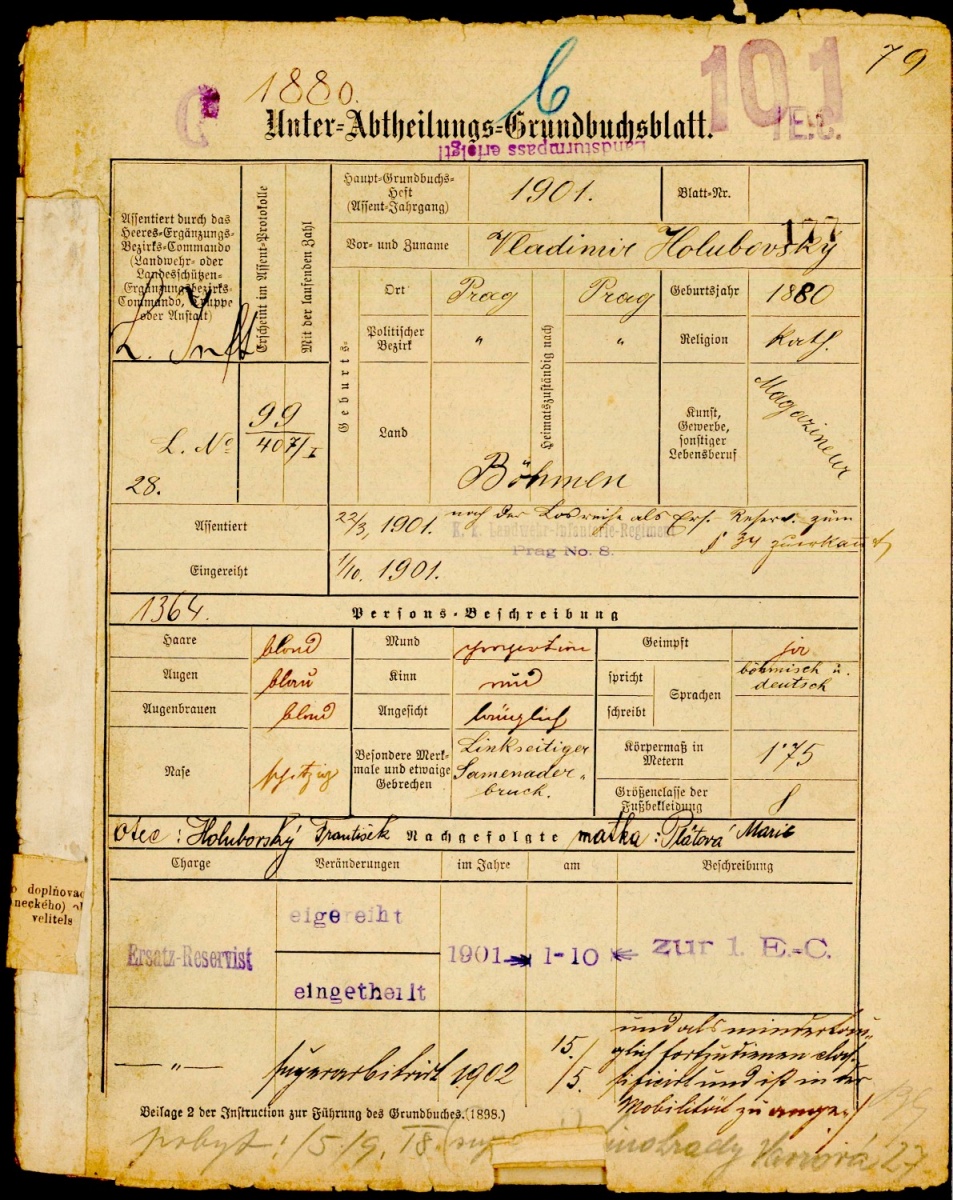 79
1880.
101
1 E.C.
Unter-Abtheilungs-Grundbuchsblatt.
Landsturmpass erfolgt!
Assentiert durch das
Heeres-Ergänzungs-
Bezirks-Commando
(Landwehr- oder
Landesschützen-
Ergänzungsbezirks-
Commando, Truppe
oder Anstalt)
Erscheint im Assent-Protokolle
Mit der laufenden Zahl
Haupt-Grundbuchs-
Heft
(Assent-Jahrgang)
1901.
Blatt-Nr.
177
Vor- und Zuname
Vladimir Holubovský
Geburts-
Ort
Prag
Heimatszuständig nach
Prag
Geburtsjahr
1880
Politischer
Bezirk
"
"
Religion
kath.
Land
Böhmen
Kunst,
Gewerbe,
sonstiger
Lebensberuf
Magazineur
L. Inft
L. No
28.
99
407/I
Assentiert
22/3, 1901. nach der Losreihe als Ers. Reserv. zum
K. k. Landwehr-Infanterie-Regiment
Prag No. 8.
§ 34
Eingereiht
1/10. 1901.
1364.
Persons-Beschreibung
Haare
blond
Mund
proportion
Geimpft
ja
Augen
blau
Kinn
rund
spricht
schreibt
Sprachen
böhmisch u.
deutsch
Augenbrauen
blond
Angesicht
länglich
Nase
spitzig
Besondere Merk-
male und etwaige
Gebrechen
Linkseitiger
Samenader-
bruch.
Körpermaß in
Metern
1·75
Größenclasse der
Fußbekleidung
otec: Holubovský František Nachgefolgte matka: Plátová Marie
Charge
Veränderungen
im Jahre
am
Beschreibung
Ersatz-Reservist
eigereiht
eingetheilt
1901
1-10
zur 1. E.-C.
o doplňovac
neckého)
velitels
— " —
superarbitrirt
1902
15./5.
und als mindertau-
glich fortzudienen clas-
sificirt und ist in der
Mobilität zu
Beilage 2 der Instruction zur Führung des Grundbuches. (1898.)
pobyt: 15./9. 18
27